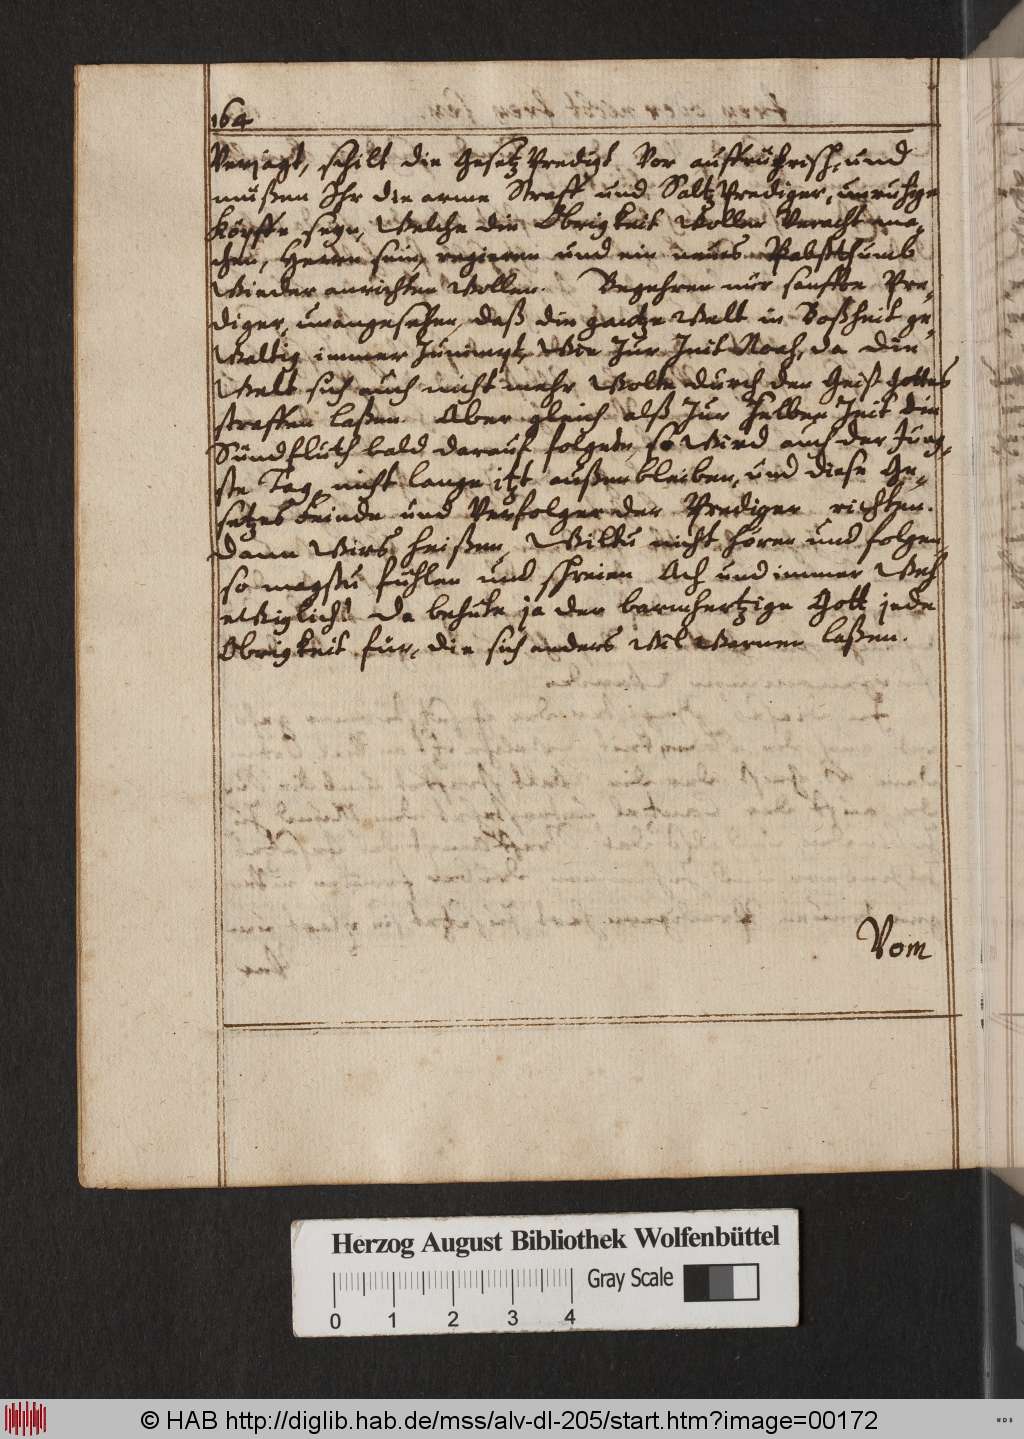 164
Verjagt, schilt die Gesetz Predigt Vor auffrührisch, und
mußen Ihr die arme Straff und Saltz Prediger, unruhige
Köpffe seyn, Welche die Obrigkeit Wollen Veracht ma-
chen, Herren sein, regieren und ein neues Pabsthumb
Wieder anrichten Wollen. Begehren nur sanffte Pre-
diger, unangesehen, daß die gantze Welt in Boßheit ge-
Waltig immer Zunimpt, Wie Zur Zeit Noah, da die
Welt sich auch nicht mehr Wolte durch den Geist Gottes
straffen laßen. Aber gleich alß Zur selben Zeit die
Sündfluth bald darauf folgete, so Wird auch der Jüng-
ste Tag nicht lange itzt außenbleiben, und diese Ge-
setzes feinde und Verfolger der Prediger richten.
Dann Wirs heißen, Wiltu nicht hören und folgen
so magstu fühlen und schreien Ach und immer Weh
eWiglich! Da behüte ja der barmhertzige Gott jede
Obrigkeit für, die sich anders Wil Warnen laßen.
Vom
Herzog August Bibliothek Wolfenbüttel
Gray Scale
0 1 2 3 4
© HAB http://diglib.hab.de/mss/alv-dl-205/start.htm?image=00172